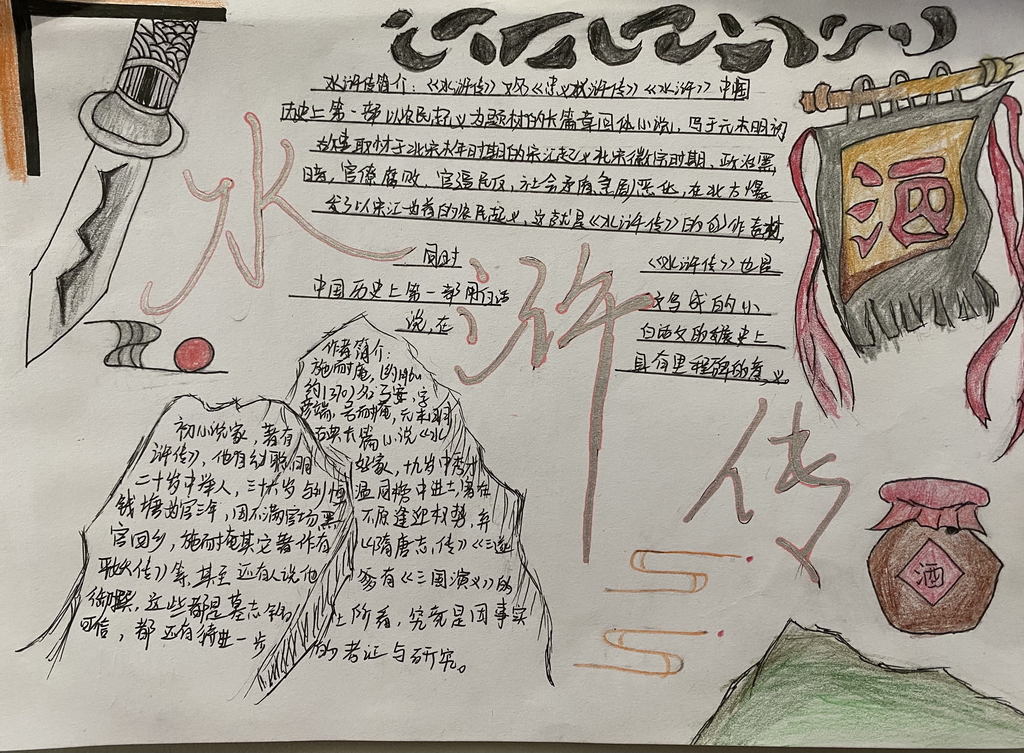 水浒传
水浒传简介：《水浒传》又名《忠义水浒传》《水浒》中国
历史上第一部以农民起义为题材的长篇章回体小说，写于元末明初
故事取材于北宋末年时期的宋江起义北宋徽宗时期，政治黑
暗，官僚腐败，官逼民反，社会矛盾急剧恶化，在北方爆
发了以宋江为首的农民起义，这就是《水浒传》的创作素材
同时 《水浒传》也是
中国历史上第一部用白话 文写成的小
说，在 白话文的历史上
具有里程碑的意义
作者简介：
施耐庵，(约1296
约1370) 名子安，字
彦端，号耐庵，元末明
初小说家，著有 古典长篇小说《水
浒传》，他自幼聪明 好家，十九岁中秀才
二十岁中举人，三十六岁与刘 温同榜中进士，
钱塘为官三年，因不满官场黑 不愿逢迎权势，弃
官回乡，施耐庵其它著作有 《隋唐志传》《三遂
平妖传》等，甚至还有人说他 有《三国演义》的
这些都是墓志铭 上所看，究竟是因事实
可信，都还有待进一步 的考证与研究。
酒
酒